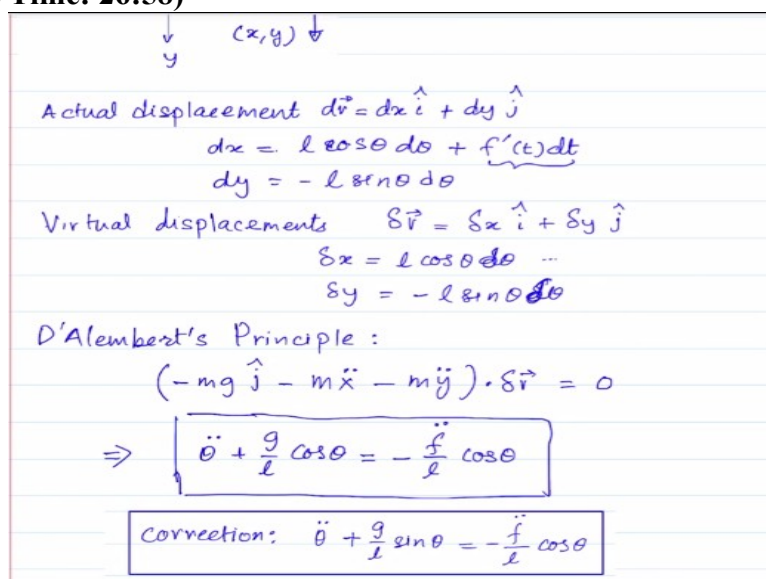 Time: 20:58)
(x,y)
y
Actual displacement dr⃗ = dx î + dy ĵ
dx = l cosθ dθ + f'(t)dt
dy = - l sinθ dθ
Virtual displacements δr⃗ = δx î + δy ĵ
δx = l cosθ δθ ...
δy = - l sinθ δθ
D'Alembert's Principle :
(-mg ĵ - mẍ - mÿ) · δr⃗ = 0
⇒ θ̈ + g/l cosθ = - f̈/l cosθ
Correction: θ̈ + g/l sinθ = - f̈/l cosθ